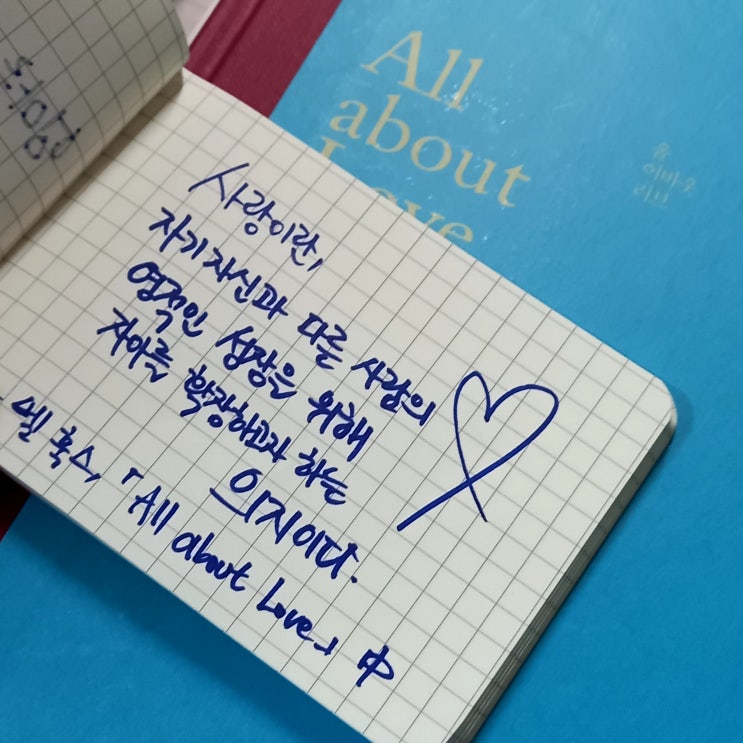 All
about
Love
올
어바웃
러브
사랑이란,
자기 자신과 다른 사람의
영적인 성장을 위해
자아를 확장하고자 하는
의지이다.
- 벨 훅스, 「All about Love」 中